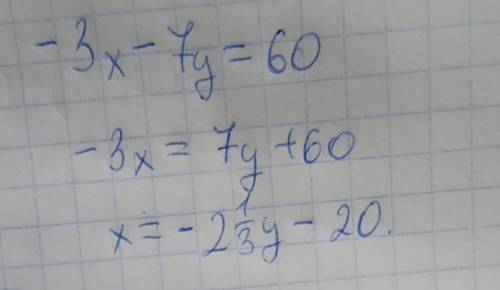 -3x - 7y = 60
-3x = 7y + 60
x = -2 1/3 y - 20.